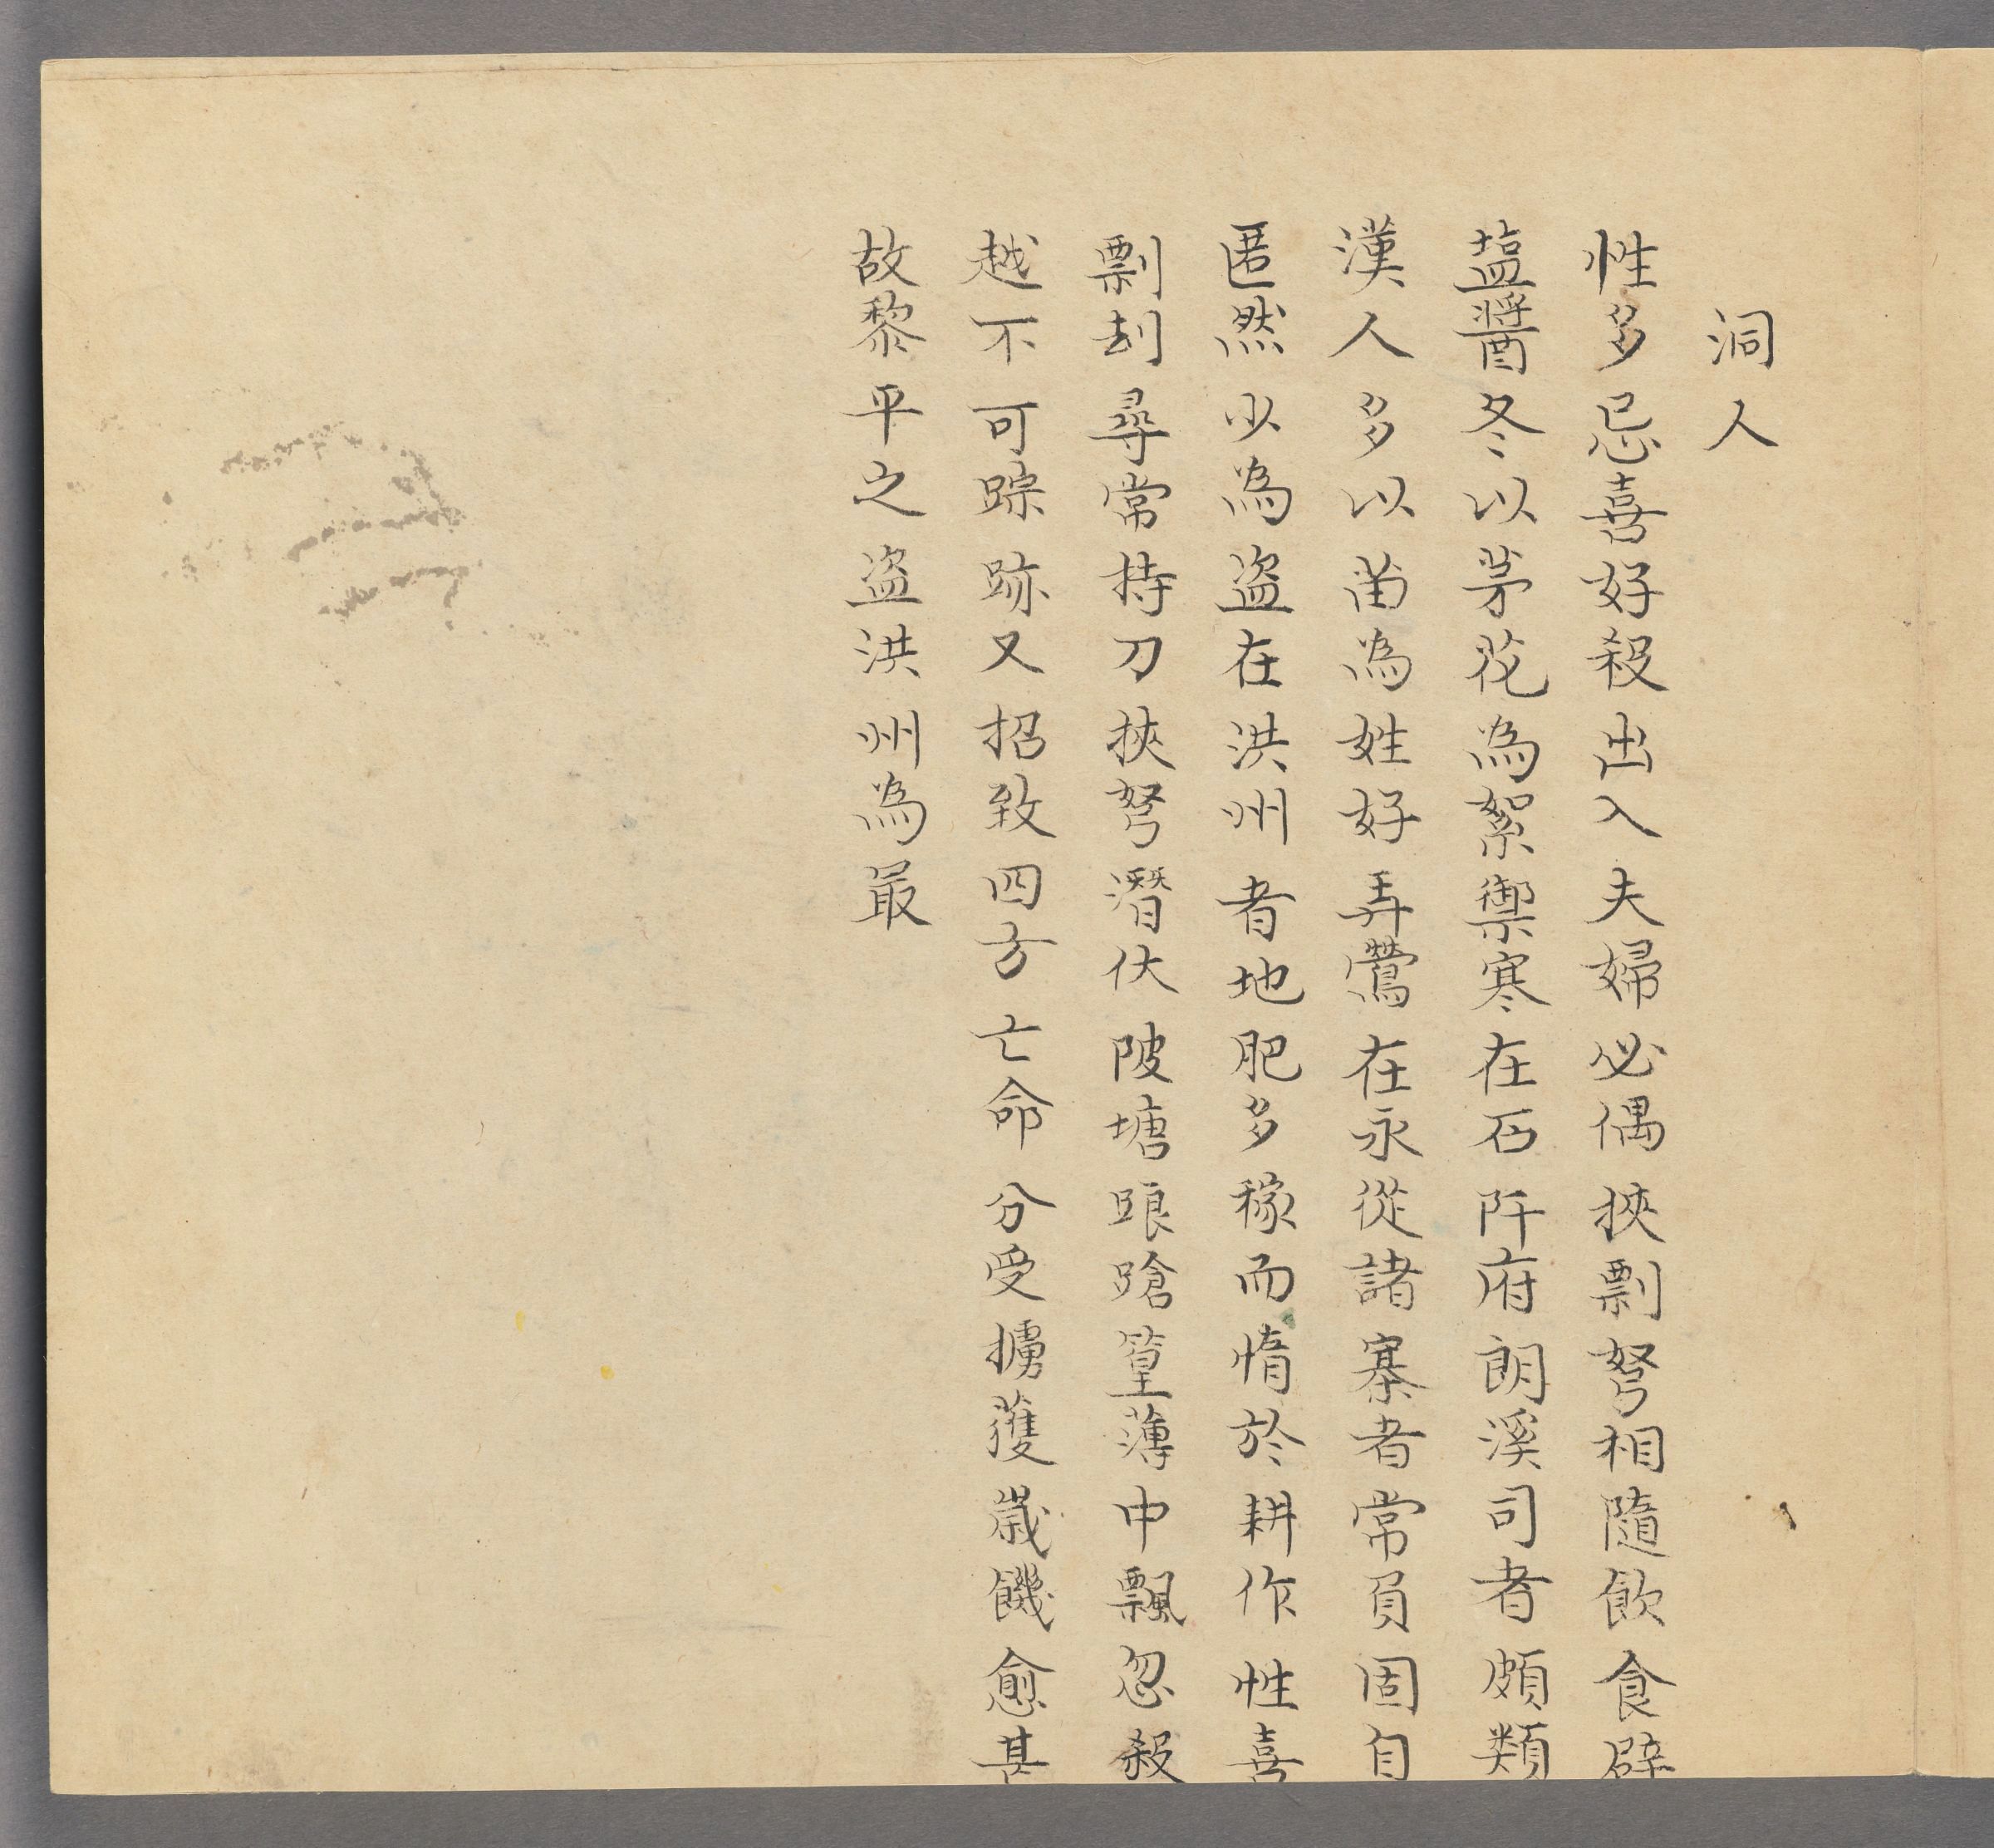 洞人
性多忌喜好殺出入夫婦必偶挾剽弩相隨飲食辟
鹽醬冬以茅花為絮禦寒在石阡府朗溪司者頗類
漢人多以苗為姓好弄鶯在永從諸寨者常負固自
匿然少為盜在洪州者地肥多稼而惰於耕作性喜
剽刦尋常持刀挾弩潛伏陂塘踉蹌篁薄中飄忽殺
越不可踪跡又招致四方亡命分受擄獲歲饑愈甚
故黎平之盜洪州為最